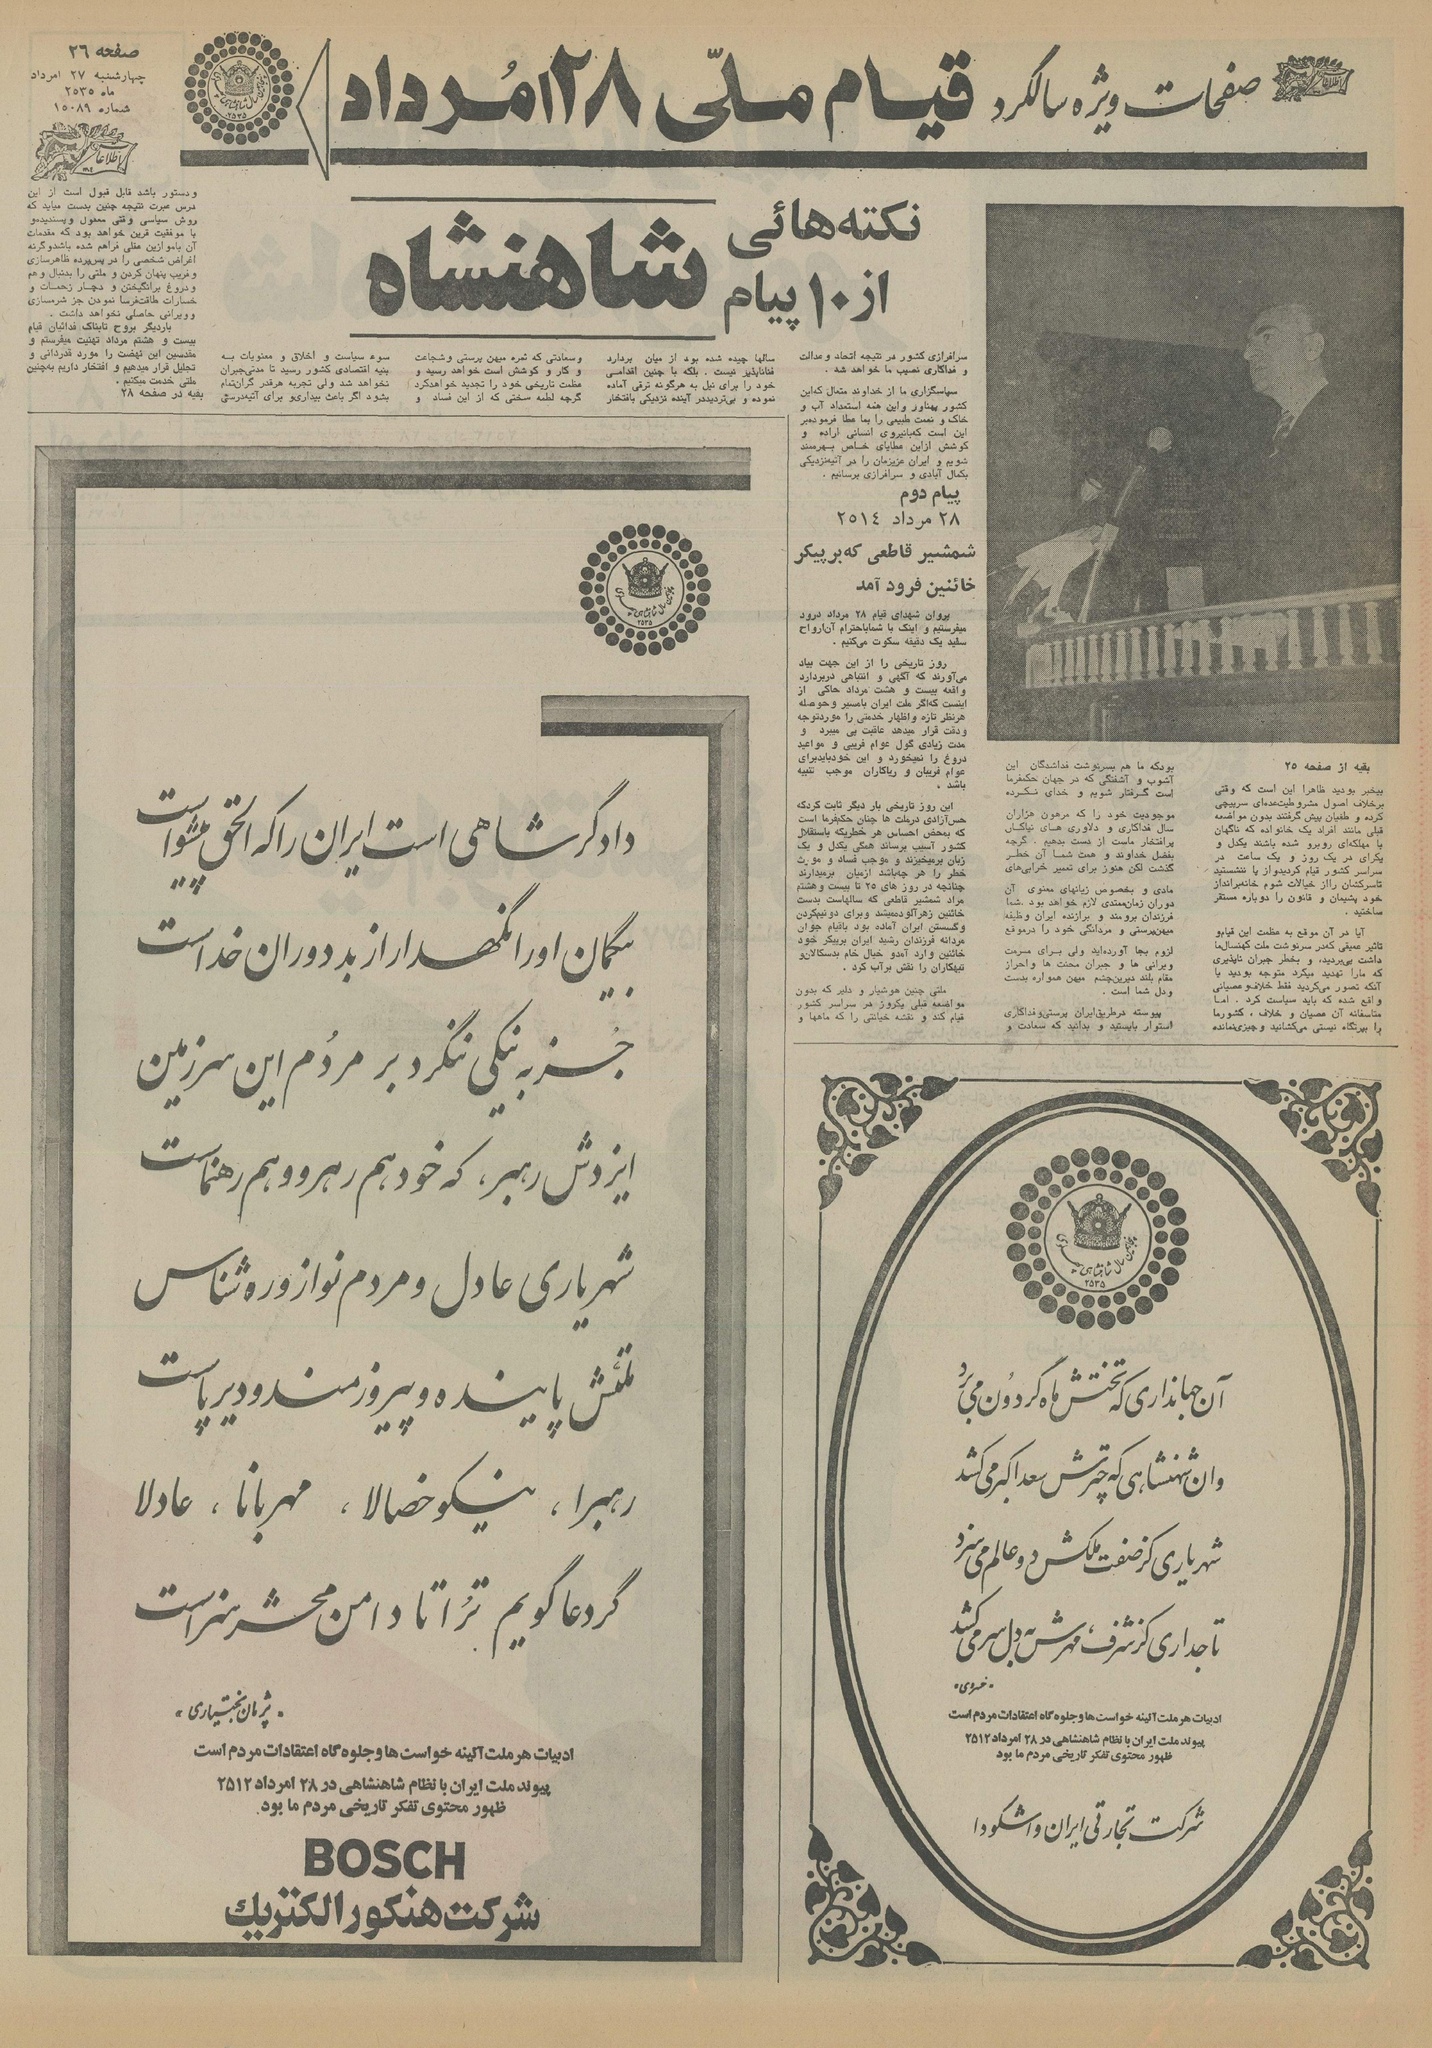 صفحات ویژه سالگرد قیام ملّی ۲۸ امُرداد
صفحه ۲۶
چهارشنبه ۲۷ امرداد
ماه ۲۵۳۵
شماره ۱۵۰۸۹
نکته‌هائی
از ۱۰ پیام
شاهنشاه
بقیه از صفحه ۲۵
بیخبر بودید ظاهرا این است که وقتی
برخلاف اصول مشروطیت‌عده‌ای سرپیچی
کرده و طغیان پیش گرفتند بدون مواضعه
قبلی مانند افراد یک خانواده که ناگهان
با مهلکه‌ای روبرو شده باشند یکدل و
یکرای در یک روز و یک ساعت در
سراسر کشور قیام کردید‌و از پا ننشستید
تاسرکشان رااز خیالات شوم خانه‌برانداز
خود پشیمان و قانون را دوباره مستقر
ساختید .
آیا در آن موقع به عظمت این قیام‌و
تاثیر عمیقی که‌در سرنوشت ملت کهنسال‌ما
داشت پی‌بردید، و بخطر جبران ناپذیری
که مارا تهدید میکرد متوجه بودید یا
آنکه تصور می‌کردید فقط خلاف‌و عصیانی
واقع شده که باید سیاست کرد . اما
متاسفانه آن عصیان و خلاف ، کشورما
را بپرتگاه نیستی می‌کشانید و چیزی‌نمانده
بودکه ما هم بسرنوشت فداشدگان این
آشوب و آشفتگی که در جهان حکمفرما
است گرفتار شویم و خدای نکرده
موجودیت خود را که مرهون هزاران
سال فداکاری و دلاوری های نیاکان
پرافتخار ماست از دست بدهیم . گرچه
بفضل خداوند و همت شما آن خطر
گذشت لکن هنوز برای تعمیر خرابی‌های
مادی و بخصوص زیانهای معنوی آن
دوران زمان‌ممتدی لازم خواهد بود .شما
فرزندان برومند و برازنده ایران وظیفه
میهن‌پرستی و مردانگی خود را درموقع
لزوم بجا آورده‌اید ولی برای مرمت
ویرانی ها و جبران محنت ها واحراز
مقام بلند دیرین‌چشم میهن همواره بدست
ودل شما است .
پیوسته درطریق‌ایران پرستی‌وفداکاری
استوار بایستید و بدانید که سعادت و
سرافرازی کشور در نتیجه اتحاد وعدالت
و فداکاری نصیب ما خواهد شد .
سپاسگزاری ما از خداوند متعال که‌این
کشور پهناور واین همه استعداد آب و
خاک و نعمت طبیعی را بما عطا فرموده‌بر
این است که‌بانیروی انسانی اراده و
کوشش ازاین عطایای خاص بهره‌مند
شویم و ایران عزیزمان را در آتیه‌نزدیکی
بکمال آبادی و سرافرازی برسانیم .
پیام دوم
۲۸ مرداد ۲۵۱۴
شمشیر قاطعی که‌بر پیکر
خائنین فرود آمد
بروان شهدای قیام ۲۸ مرداد درود
میفرستیم و اینک با شمابااحترام آن‌ارواح
سعید یک دقیقه سکوت می‌کنیم .
روز تاریخی را از این جهت بیاد
می‌آورند که آگهی و انتباهی دربردارد
واقعه بیست و هشت مرداد حاکی از
اینست که‌اگر ملت ایران باصبر وحوصله
هرنظر تازه واظهار خدمتی را موردتوجه
ودقت قرار میدهد عاقبت پی میبرد و
مدت زیادی گول عوام فریبی و مواعید
دروغ را نمیخورد و این خودبایدبرای
عوام فریبان و ریاکاران موجب تنبیه
باشد .
این روز تاریخی بار دیگر ثابت کردکه
حس‌آزادی درملت ها چنان حکم‌فرما است
که بمحض احساس هر خطریکه باستقلال
کشور آسیب برساند همگی یکدل و یک
زبان برمیخیزند و موجب فساد و مورث
خطر را هر چه‌باشد ازمیان برمیدارند
چنانچه در روز های ۲۵ تا بیست وهشتم
مرداد شمشیر قاطعی که سالهاست بدست
خائنین زهرآلودمیشد وبرای دونیم‌کردن
وگسستن ایران آماده بود باقیام جوان
مردانه فرزندان رشید ایران برپیکر خود
خائنین وارد آمدو خیال خام بدسگالان‌و
تبهکاران را نقش برآب کرد .
ملتی چنین هوشیار و دلیر که بدون
مواضعه قبلی یکروز در سراسر کشور
قیام کند و نقشه خیانتی را که ماهها و
سالها چیده شده بود از میان بردارد
فناناپذیر نیست . بلکه با چنین اقدامی
خود را برای نیل به هرگونه ترقی آماده
نموده و بی‌تردیددر آینده نزدیکی باافتخار
وسعادتی که ثمره میهن پرستی وشجاعت
و کار و کوشش است خواهد رسید و
عظمت تاریخی خود را تجدید خواهدکرد
گرچه لطمه سختی که از این فساد و
سوء سیاست و اخلاق و معنویات به
بنیه اقتصادی کشور رسید تا مدتی‌جبران
نخواهد شد ولی تجربه هرقدر گران‌تمام
بشود اگر باعث بیداری‌و برای آتیه‌درستی
ودستور باشد قابل قبول است از این
درس عبرت نتیجه چنین بدست میاید که
روش سیاسی وقتی معقول وپسندیده‌و
با موفقیت قرین خواهد بود که مقدمات
آن باموازین عقلی فراهم شده باشدوگرنه
اغراض شخصی را در پس‌پرده ظاهرسازی
وفریب پنهان کردن و ملتی را بدنبال وهم
ودروغ برانگیختن و دچار زحمات و
خسارات طاقت‌فرسا نمودن جز شرمسازی
وویرانی حاصلی نخواهد داشت .
باردیگر بروح تابناک فدائیان قیام
بیست و هشتم مرداد تهنیت میفرستم و
مقدسین این نهضت را مورد قدردانی و
تجلیل قرار میدهیم و افتخار داریم به‌چنین
ملتی خدمت میکنیم .
بقیه در صفحه ۲۸
دادگر شاهی است ایران را که الحق پیشواست
بیگمان او را نگهدار از بد دوران خداست
جُز به نیکی ننگرد بر مردُم این سرزمین
ایزدش رهبر، که خود هم رهرو و هم رهنماست
شهریاری عادل و مردم نواز و ره شناس
ملتش پاینده و پیروزمند و دیرپاست
رهبرا ، نیکو خصالا ، مهربانا ، عادلا
گر دعا گویم ترُا تا دامن محشر سزاست
« پژمان بختیاری »
ادبیات هر ملت آئینه خواست ها و جلوه گاه اعتقادات مردم است
پیوند ملت ایران با نظام شاهنشاهی در ۲۸ امرداد ۲۵۱۲
ظهور محتوی تفکر تاریخی مردم ما بود.
BOSCH
شرکت هنکور الکتریک
آن جهانداری که تختش ماه گردون می برد
وان شهنشاهی که چترش سعد اکبر می کشد
شهریاری کز صفت ملکش دو عالم می سزد
تاجداری کز شرف، مهرش به دل سر می کشد
« خسروی »
ادبیات هر ملت آئینه خواست ها و جلوه گاه اعتقادات مردم است
پیوند ملت ایران با نظام شاهنشاهی در ۲۸ امرداد ۲۵۱۲
ظهور محتوی تفکر تاریخی مردم ما بود
شرکت تجارتی ایران و اشکودا